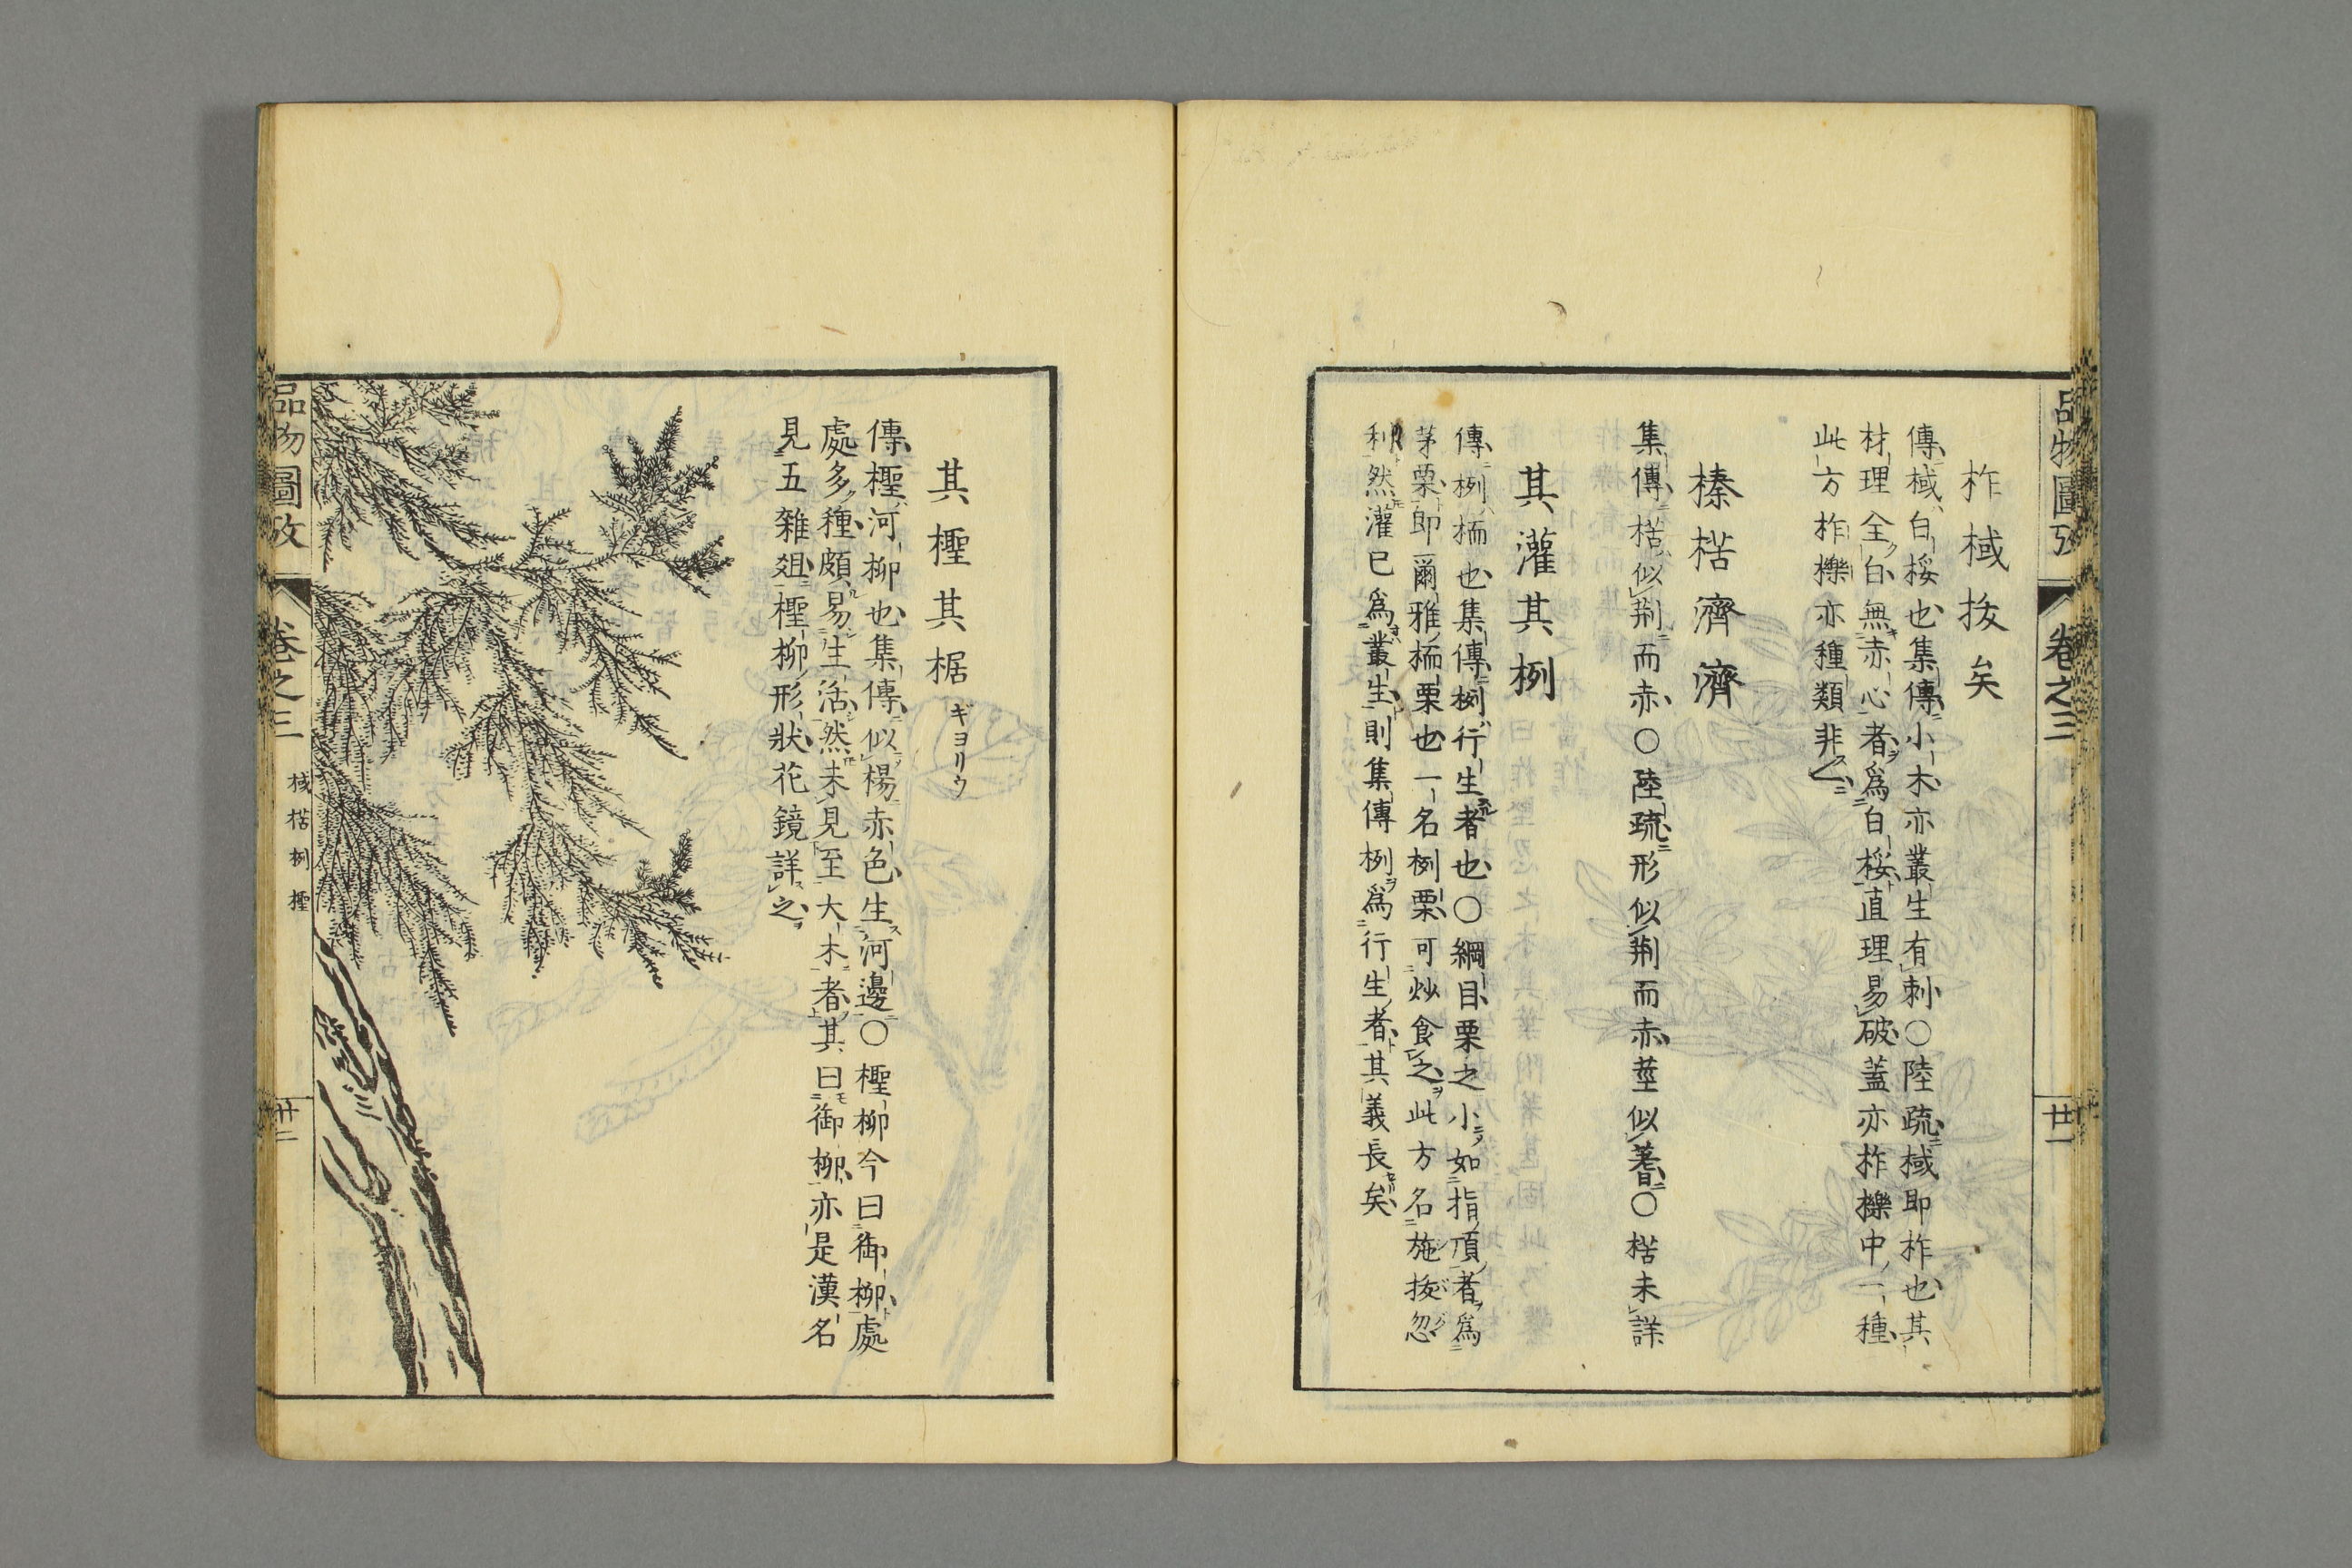 品物圖攷
卷之三
廿一
柞棫拔矣
傳棫白桵也集傳小木亦叢生有刺○陸疏棫即柞也其
材理全白無赤心者爲白桵直理易破蓋亦柞櫟中一種
此方柞櫟亦種類非一
榛楛濟濟
集傳楛似荆而赤○陸疏形似荆而赤莖似蓍○楛未詳
其灌其栵
傳栵栭也集傳栵行生者也○綱目栗之小如指頂者爲
茅栗即爾雅栭栗也一名栵栗可炒食之此方名施拔忽
利然灌已爲叢生則集傳栵爲行生者其義長矣
其檉其椐 ギヨリウ
傳檉河柳也集傳似楊赤色生河邊○檉柳今曰御柳處
處多種頗易生活然未見至大木者其曰御柳亦是漢名
見五雜俎檉柳形狀花鏡詳之
品物圖攷
卷之三
棫楛栵檉
廿二